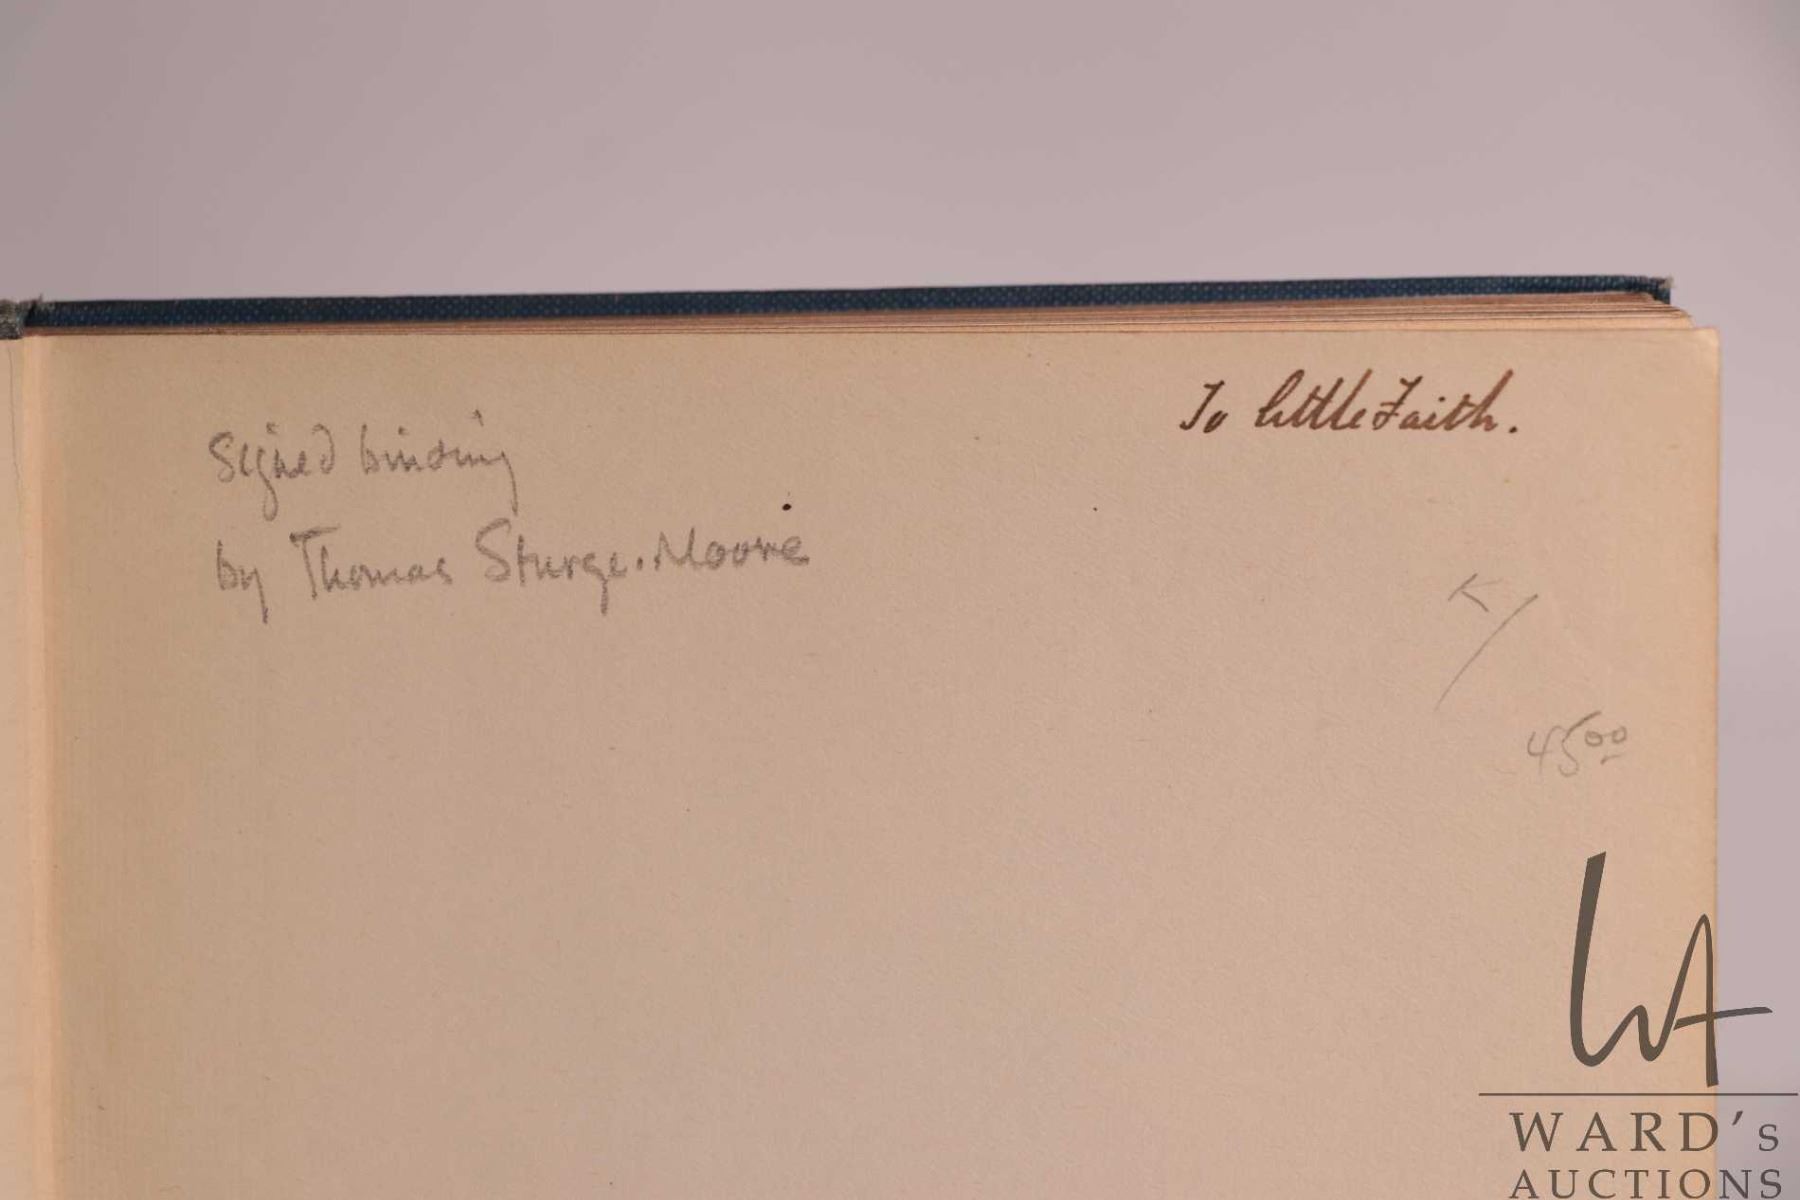 To little Faith.
Signed binding
by Thomas Sturge.Moore
K
45.00
WA
WARD's
AUCTIONS